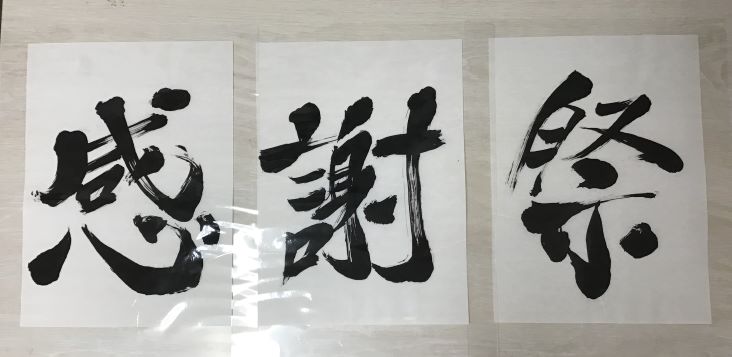 感謝祭